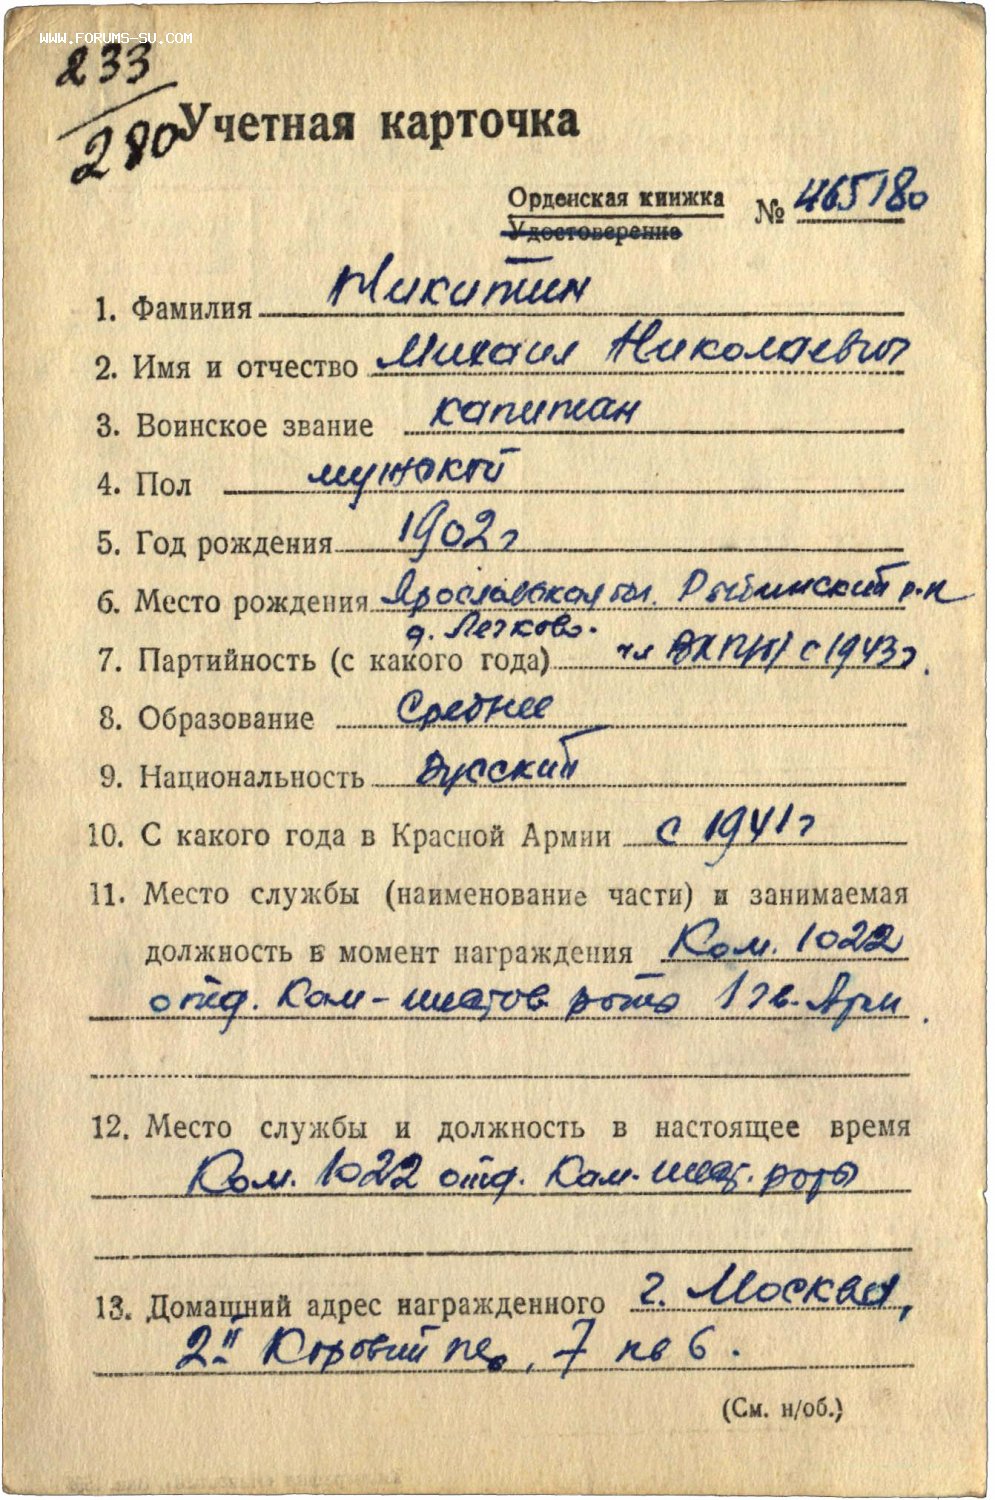 WWW.FORUMS-SU.COM
233
280
Учетная карточка
Орденская книжка
Удостоверение
№ 465180
1. Фамилия Никитин
2. Имя и отчество Михаил Николаевич
3. Воинское звание капитан
4. Пол мужской
5. Год рождения 1902 г
6. Место рождения Ярославская обл. Рыбинский р-н
д. Легково.
7. Партийность (с какого года) чл ВКП/б/ с 1943 г.
8. Образование Среднее
9. Национальность Русский
10. С какого года в Красной Армии с 1941 г
11. Место службы (наименование части) и занимаемая
должность в момент награждения Ком. 1022
отд. Кам- роты 1 гв. Арм.
12. Место службы и должность в настоящее время
Ком. 1022 отд. Кам. роты
13. Домашний адрес награжденного г. Москва,
2й Коровий пер, 7 кв 6.
(См. н/об.)